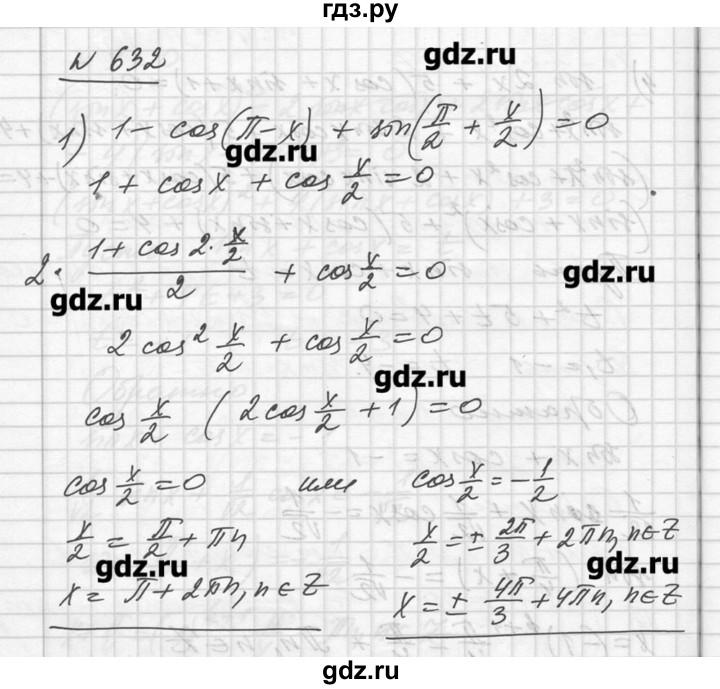 гдз.ру
gdz.ru
N 632
1) 1 - cos(π - x) + sin(π/2 + x/2) = 0
gdz.ru
1 + cos x + cos x/2 = 0
2 · (1 + cos 2 · x/2)/2 + cos x/2 = 0
gdz.ru gdz.ru
2 cos² x/2 + cos x/2 = 0
gdz.ru
cos x/2 (2 cos x/2 + 1) = 0
cos x/2 = 0 или cos x/2 = -1/2
x/2 = π/2 + πn x/2 = ± 2π/3 + 2πn, n ∈ Z
gdz.ru gdz.ru
x = π + 2πn, n ∈ Z x = ± 4π/3 + 4πn, n ∈ Z
gdz.ru